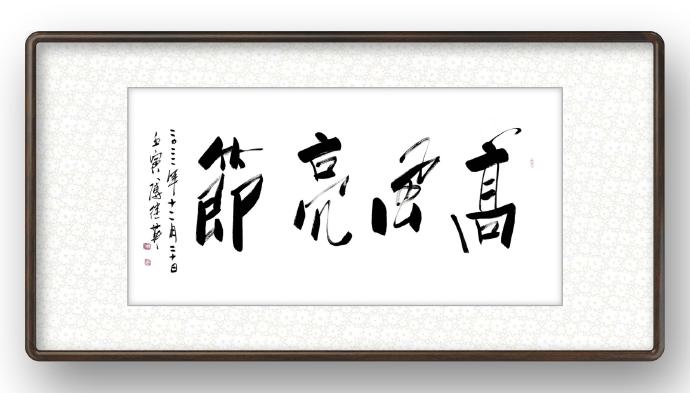 高風亮節
二〇二二年十二月二十日
壬寅 傅继英